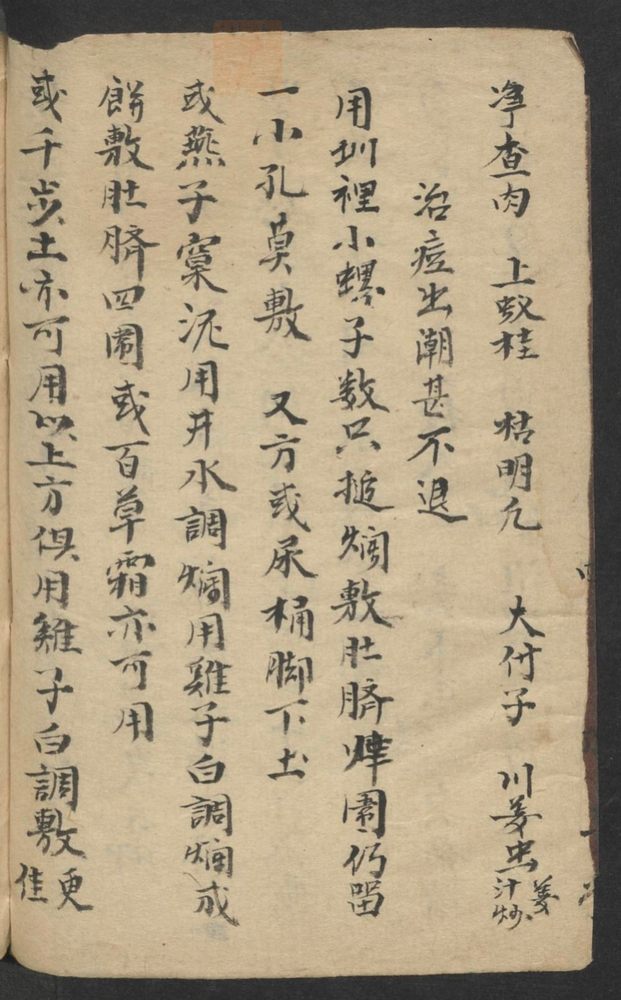 净查肉 上蚁桂 枯明凡 大付子 川姜虫姜汁炒
治痘出潮甚不退
用圳裡小螺子数只搥爛敷肚臍四圍仍畄
一小孔莫敷 又方或尿桶脚下土
或燕子窠泥用井水調爛用雞子白調爛成
餅敷肚臍四圍或百草霜亦可用
或千步土亦可用以上方俱用雞子白調敷更佳